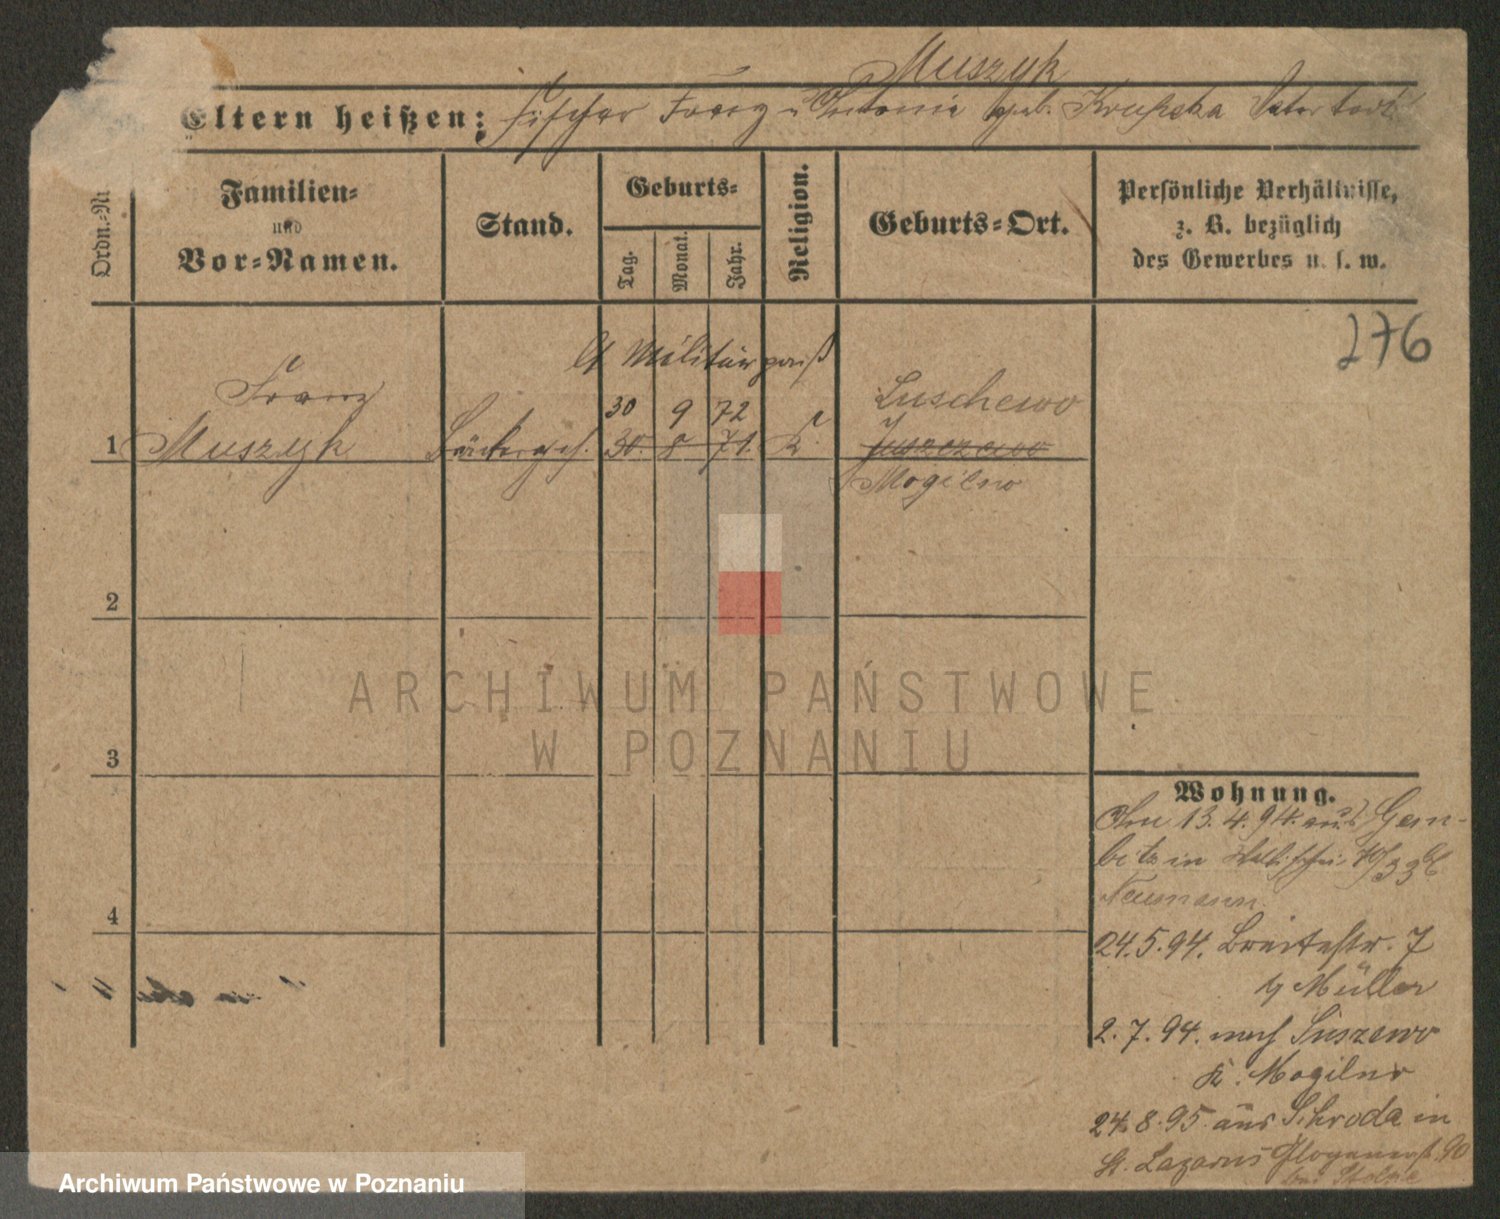 Muszyk
Eltern heißen: Fischer Franz u Antonie geb. Krupska Vater todt
Ordn.-Nr.
Familien- und Vor-Namen.
Stand.
Geburts-
Tag. Monat. Jahr.
Religion.
Geburts-Ort.
Persönliche Verhältnisse,
z. B. bezüglich
des Gewerbes u. s. w.
276
lt Militärpaß
Franz
30 9 72
Luschewo
1 Muszyk Bäckerges. 30. 8 71. k.
Mogilno
2
3
4
ARCHIWUM PAŃSTWOWE
W POZNANIU
Wohnung.
Am 13.4.94. aus Gem-
bitz in Wallischei
Neumann.
24.5.94. Breitestr. 7
b/ Müller
2.7.94. nach Suszewo
K. Mogilno
24.8.95. aus Schroda in
St. Lazarus Glogauerstr. 90
bei
Archiwum Państwowe w Poznaniu